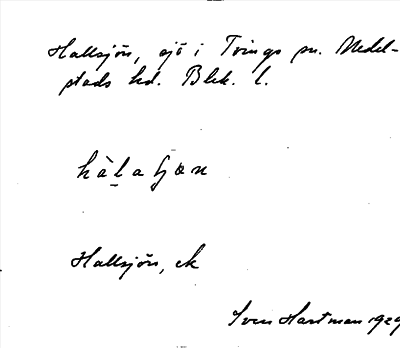 Hallsjön, sjö i Tvings sn. Medel-
stads hd. Blek. l.
hàlaʃön
Hallsjön, ek
Sven Hartman 1929